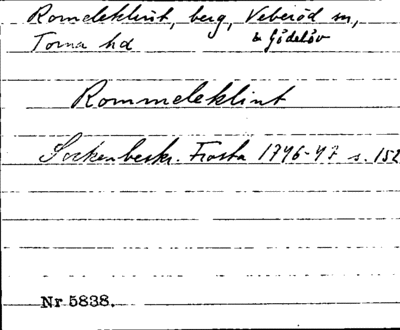 Romleklint, berg, Veberöd sn,
& Gödelöv
Torna hd
Rommeleklint
Sockenbeskr. Frosta 1746-47 s. 152
Nr 5838.